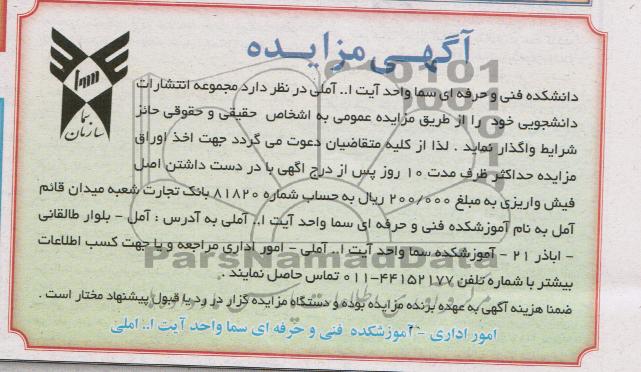 آگهی مزایده
سما
سازمان سما
دانشکده فنی و حرفه ای سما واحد آیت ا.. آملی در نظر دارد مجموعه انتشارات
دانشجویی خود را از طریق مزایده عمومی به اشخاص حقیقی و حقوقی حائز
شرایط واگذار نماید . لذا از کلیه متقاضیان دعوت می گردد جهت اخذ اوراق
مزایده حداکثر ظرف مدت ۱۰ روز پس از درج آگهی با در دست داشتن اصل
فیش واریزی به مبلغ ۲۰۰/۰۰۰ ریال به حساب شماره ۸۱۸۲۰ بانک تجارت شعبه میدان قائم
آمل به نام آموزشکده فنی و حرفه ای سما واحد آیت ا.. آملی به آدرس : آمل - بلوار طالقانی
- اباذر ۲۱ - آموزشکده سما واحد آیت ا.. آملی - امور اداری مراجعه و یا جهت کسب اطلاعات
بیشتر با شماره تلفن ۴۴۱۵۲۱۷۷-۰۱۱ تماس حاصل نمایند .
ضمنا هزینه آگهی به عهده برنده مزایده بوده و دستگاه مزایده گزار در رد یا قبول پیشنهاد مختار است .
امور اداری - آموزشکده فنی و حرفه ای سما واحد آیت ا.. املی
ParsNamadData